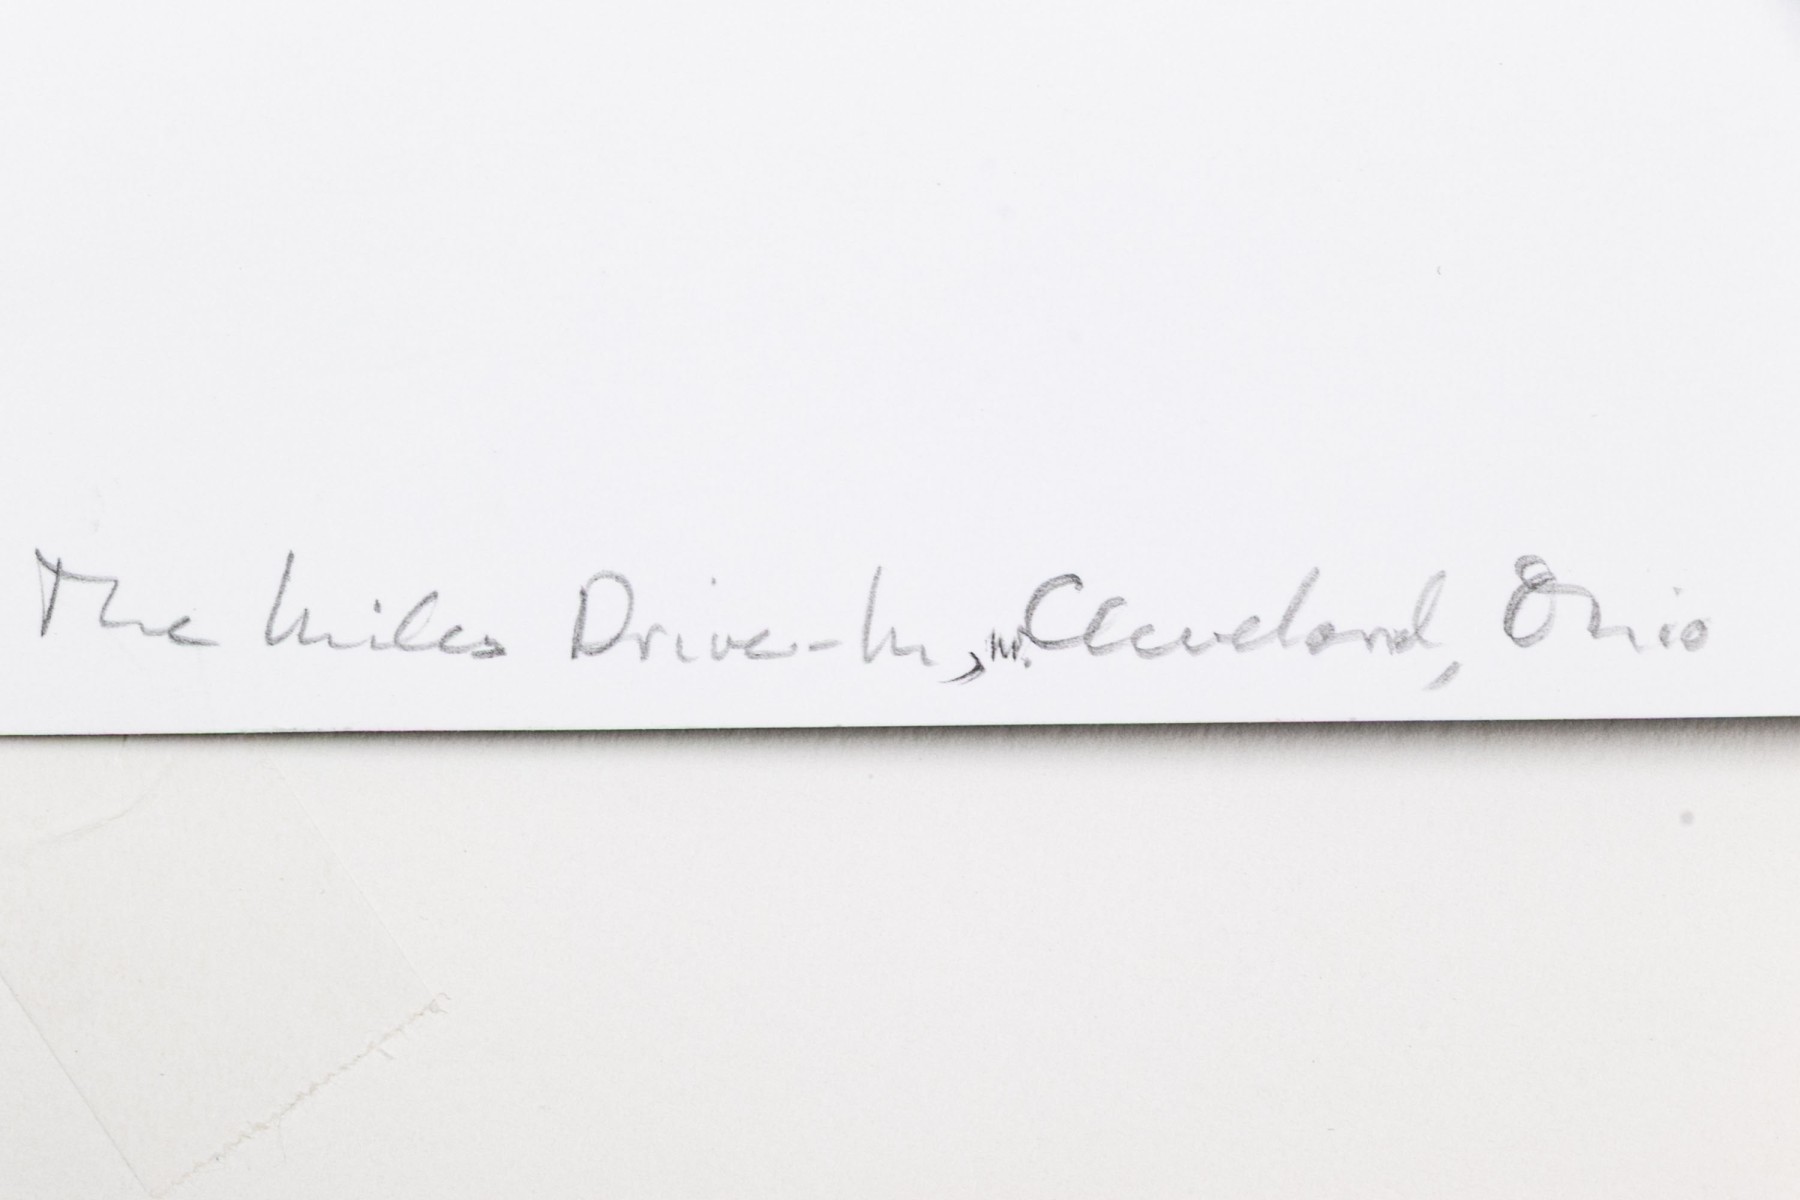 The Miles Drive-In, nr. Cleveland, Ohio